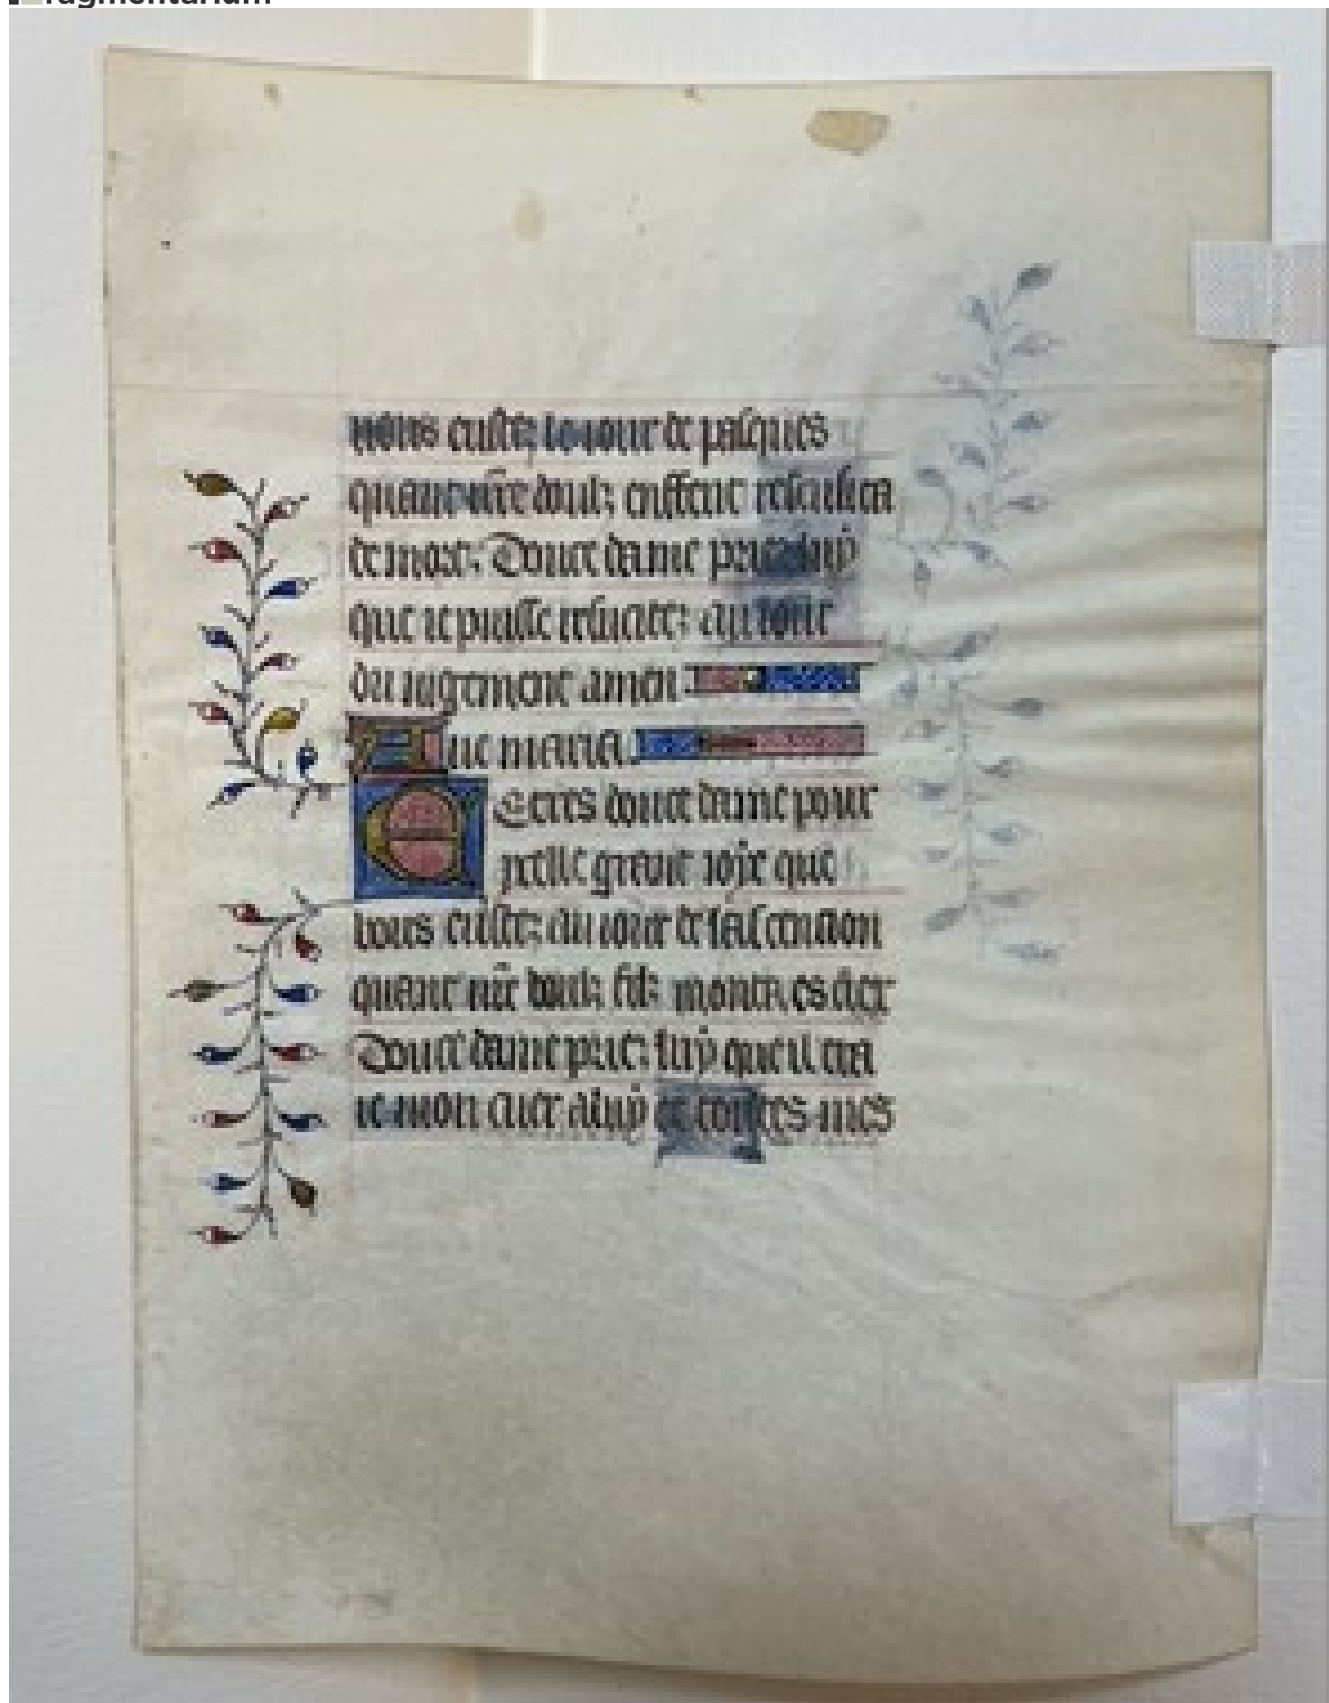 ragmentarium
vous eustez le iour de pasques
quant vr̃e doulz enffent resuscita
de mort. Doulce dame priez luy
que ie puisse resusciter au iour
du iugement amen.
Aue maria.
E Et tres doulce dame pour
celle grant ioye que
vous eustez au iour de lascencion
quant vr̃e doulz filz monta es cielx
Doulce dame priez luy que il tra
ie mon cuer a luy et toutes mes